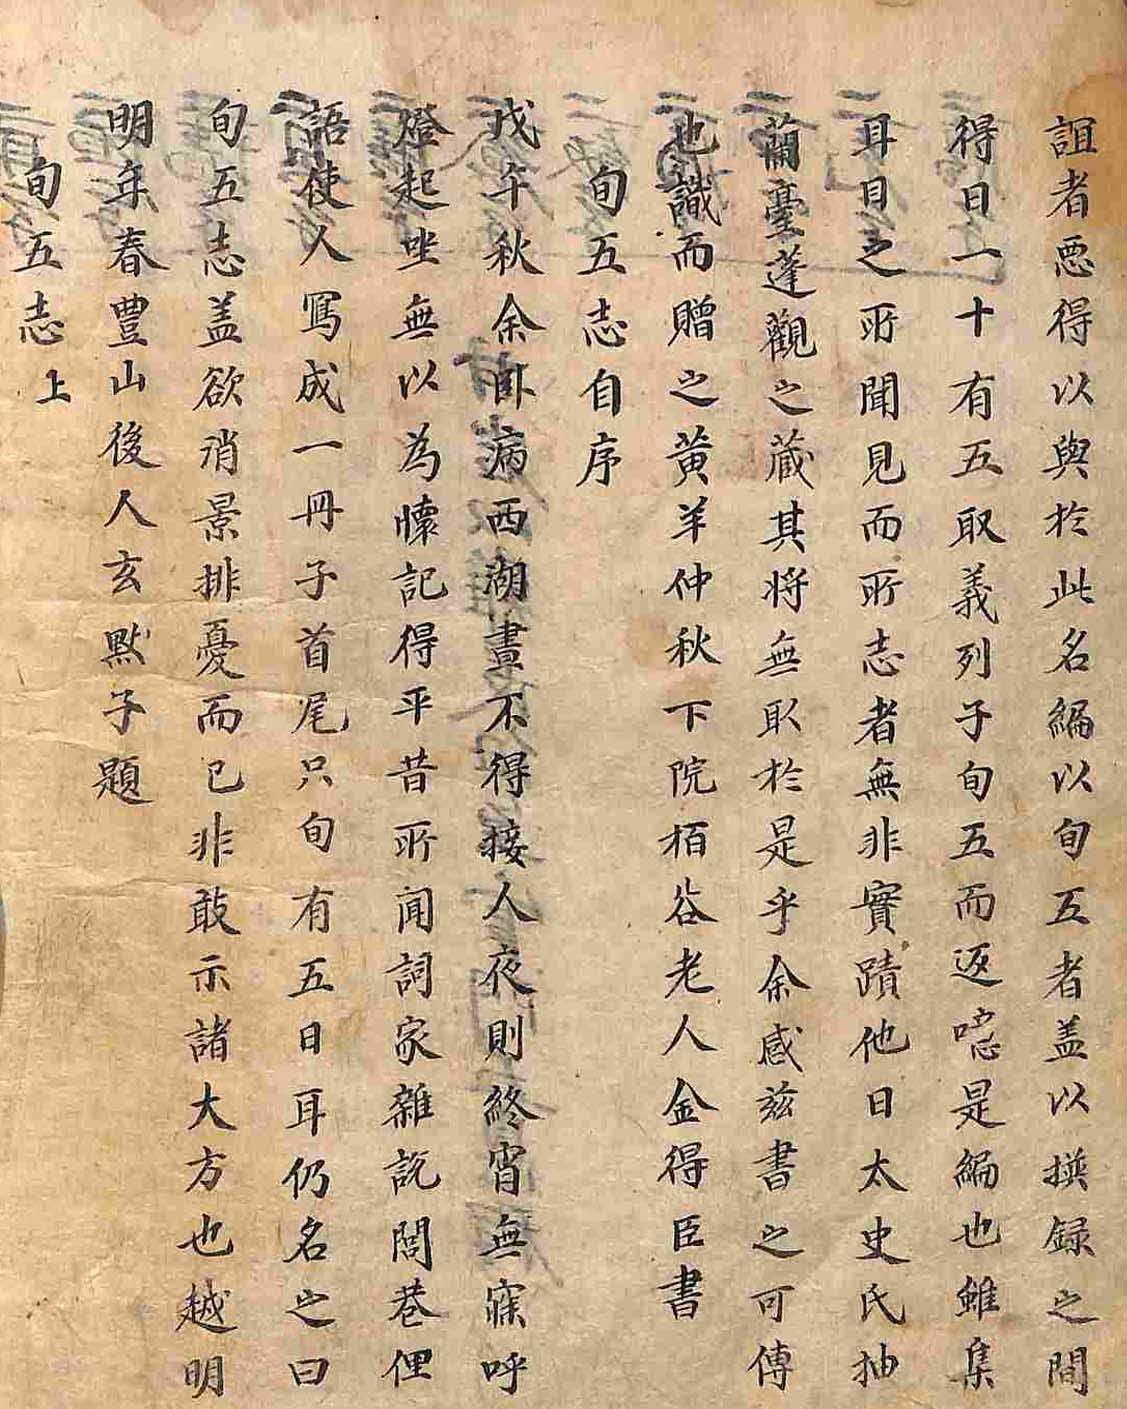 詛者惡得以與於此名編以旬五者盖以撰録之間
得日一十有五取義列子旬五而返噫是編也雖集
耳目之所聞見而所志者無非實蹟他日太史氏抽
蘭臺蓬觀之蔵其將無取於是乎余感兹書之可傳
也識而贈之黃羊仲秋下院栢谷老人金得臣書
旬五志自序
戊午秋余卧病西湖晝不得接人夜則終宵無寐呼
燈起坐無以為懷記得平昔所闻詞家雜説閭巷俚
語使人寫成一冊子首尾只旬有五日耳仍名之曰
旬五志盖欲消景排憂而已非敢示諸大方也越明
明年春豊山後人玄默子題
旬五志上